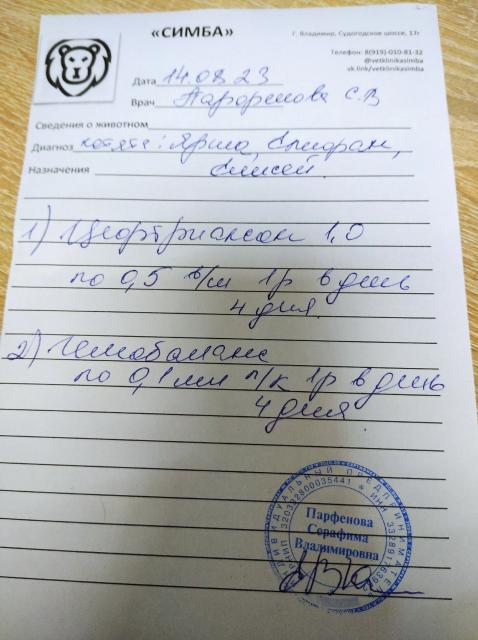 «СИМБА»
Г. Владимир, Судогодское шоссе, 17г
Телефон: 8(919)-010-81-32
@vetklinikasimba
vk.link/vetklinikasimba
Дата 14.08.23
Врач Парфенова С.В
Сведения о животном
Диагноз котята:
Назначения Елисей.
1) Цефтриаксон 1,0
по 0,5 в/м 1р в день
4 дня.
2) Гемобаланс
по 0,1мл п/к 1р в день
4 дня.
ИНДИВИДУАЛЬНЫЙ ПРЕДПРИНИМАТЕЛЬ
ИНН
Парфенова
Серафима
Владимировна